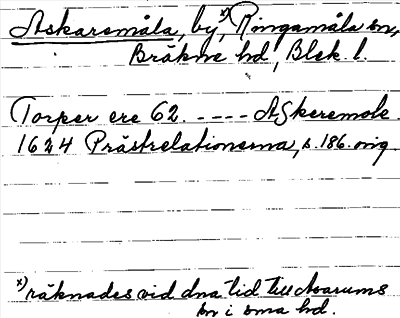 Askaremåla, by, x) Ringamåla sn,
Bräkne hd, Blek. l.
Torper ere 62. ---- ASkeremole.
1624 Prästrelationerna, s. 186. orig.
x) räknades vid dna tid till Asarums
sn i sma hd.